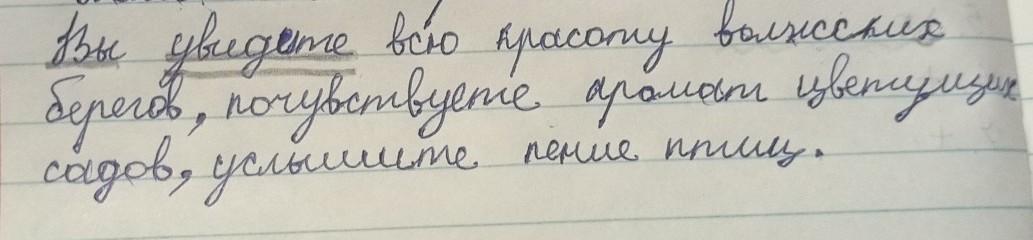 Вы увидите всю красоту волжских
берегов, почувствуете аромат цветущих
садов, услышите пение птиц.